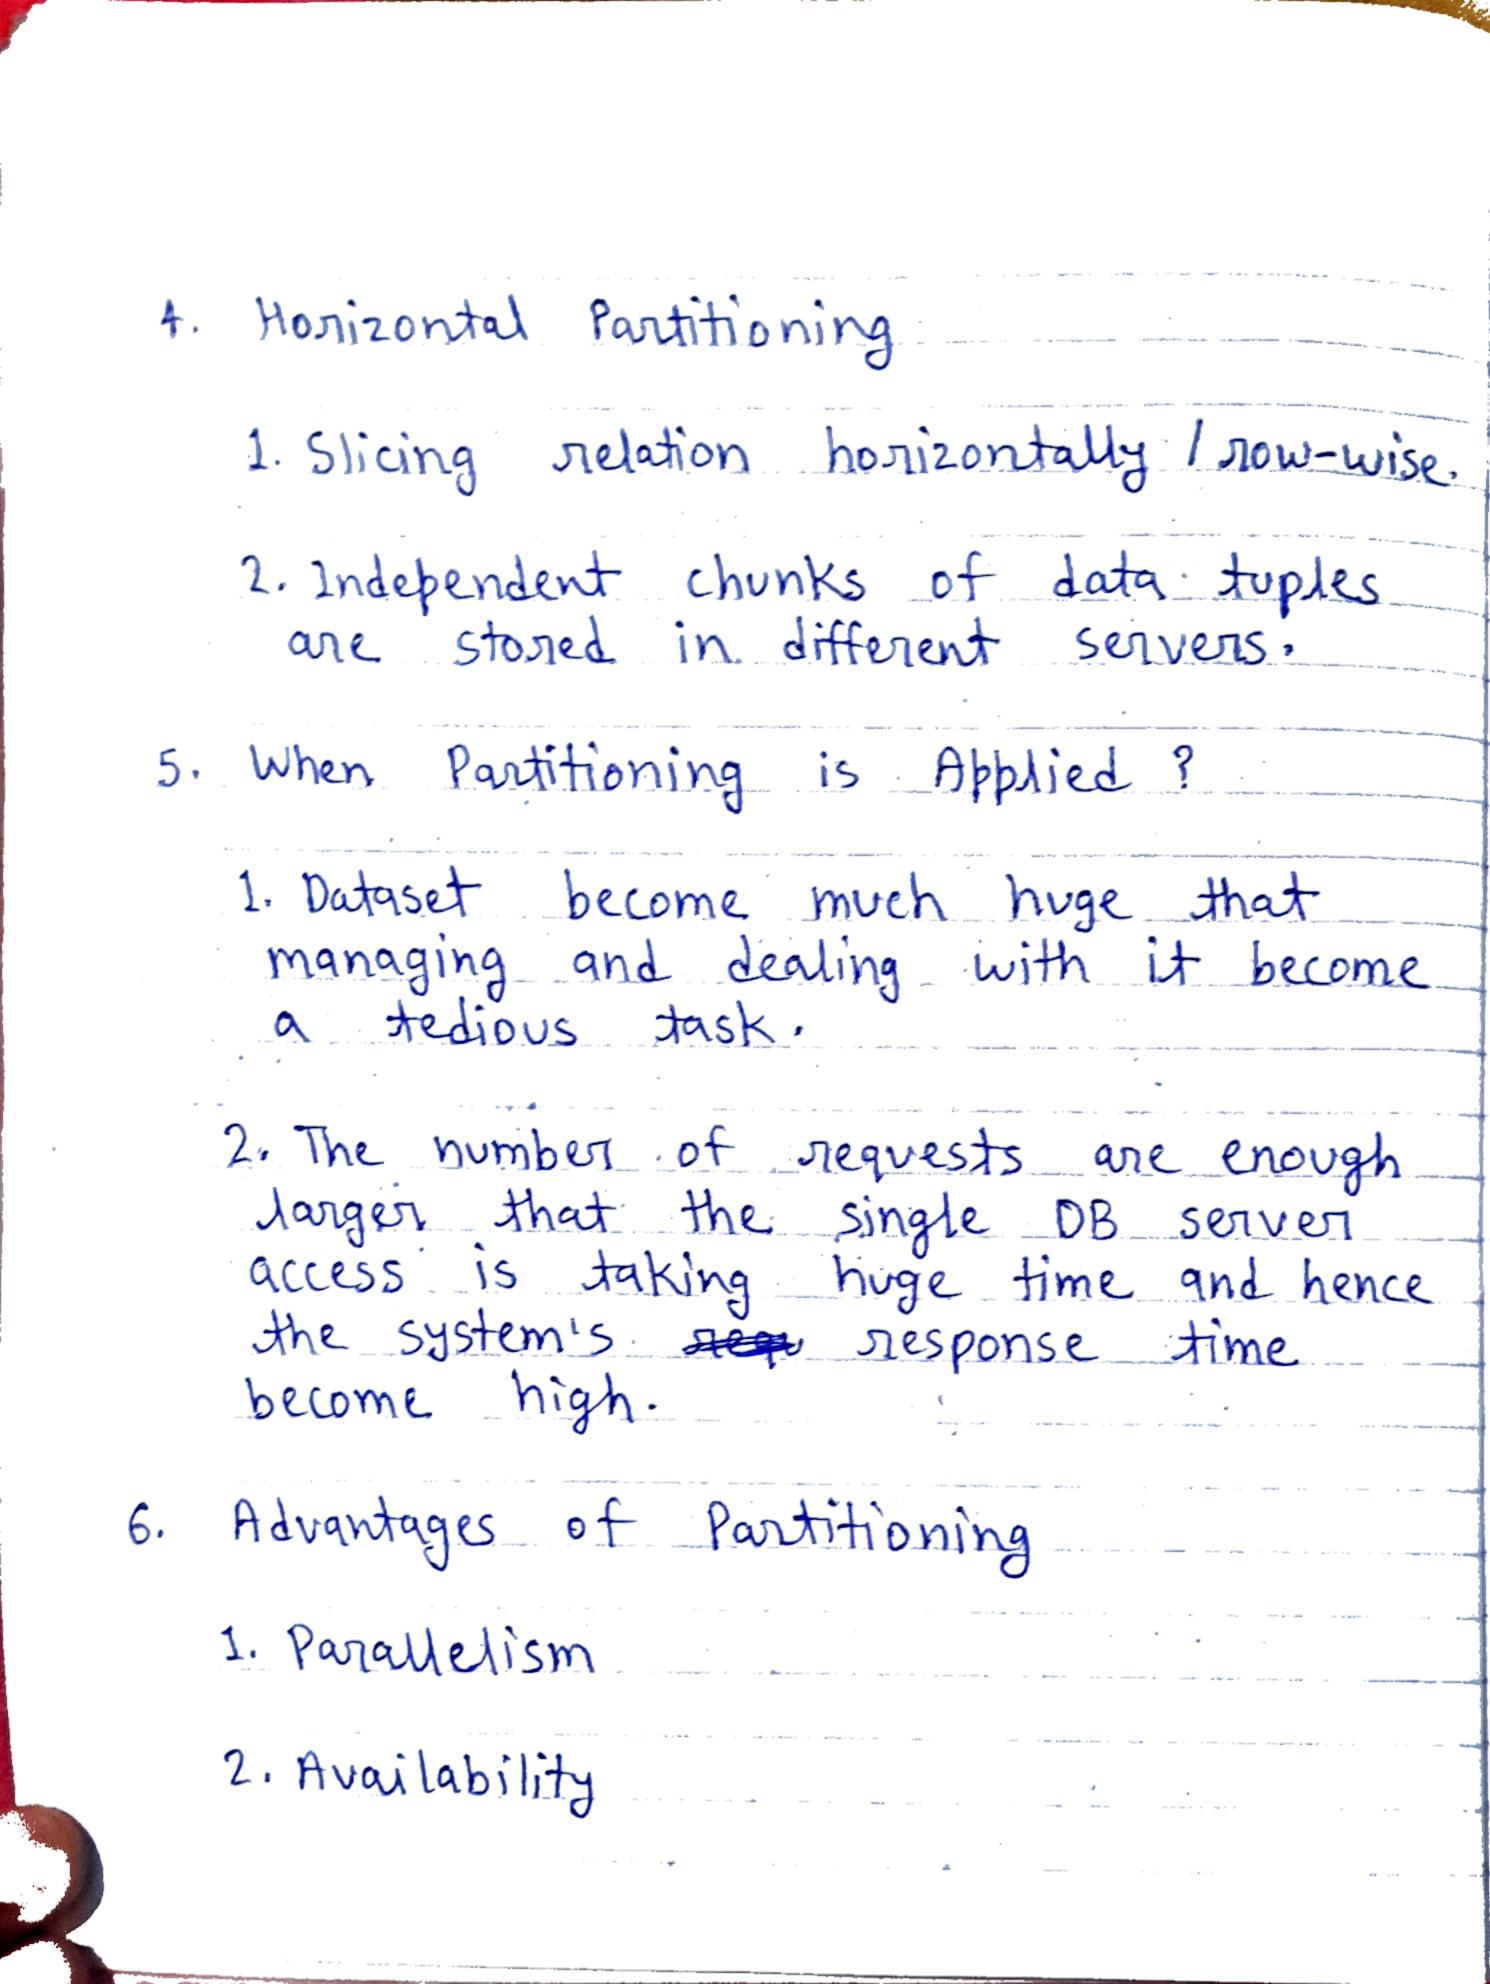 4. Horizontal Partitioning
1. Slicing relation horizontally / row-wise.
2. Independent chunks of data tuples
are stored in different servers.
5. When Partitioning is Applied ?
1. Dataset become much huge that
managing and dealing with it become
a tedious task.
2. The number of requests are enough
larger that the single DB server
access is taking huge time and hence
the system's response time
become high.
6. Advantages of Partitioning
1. Parallelism
2. Availability